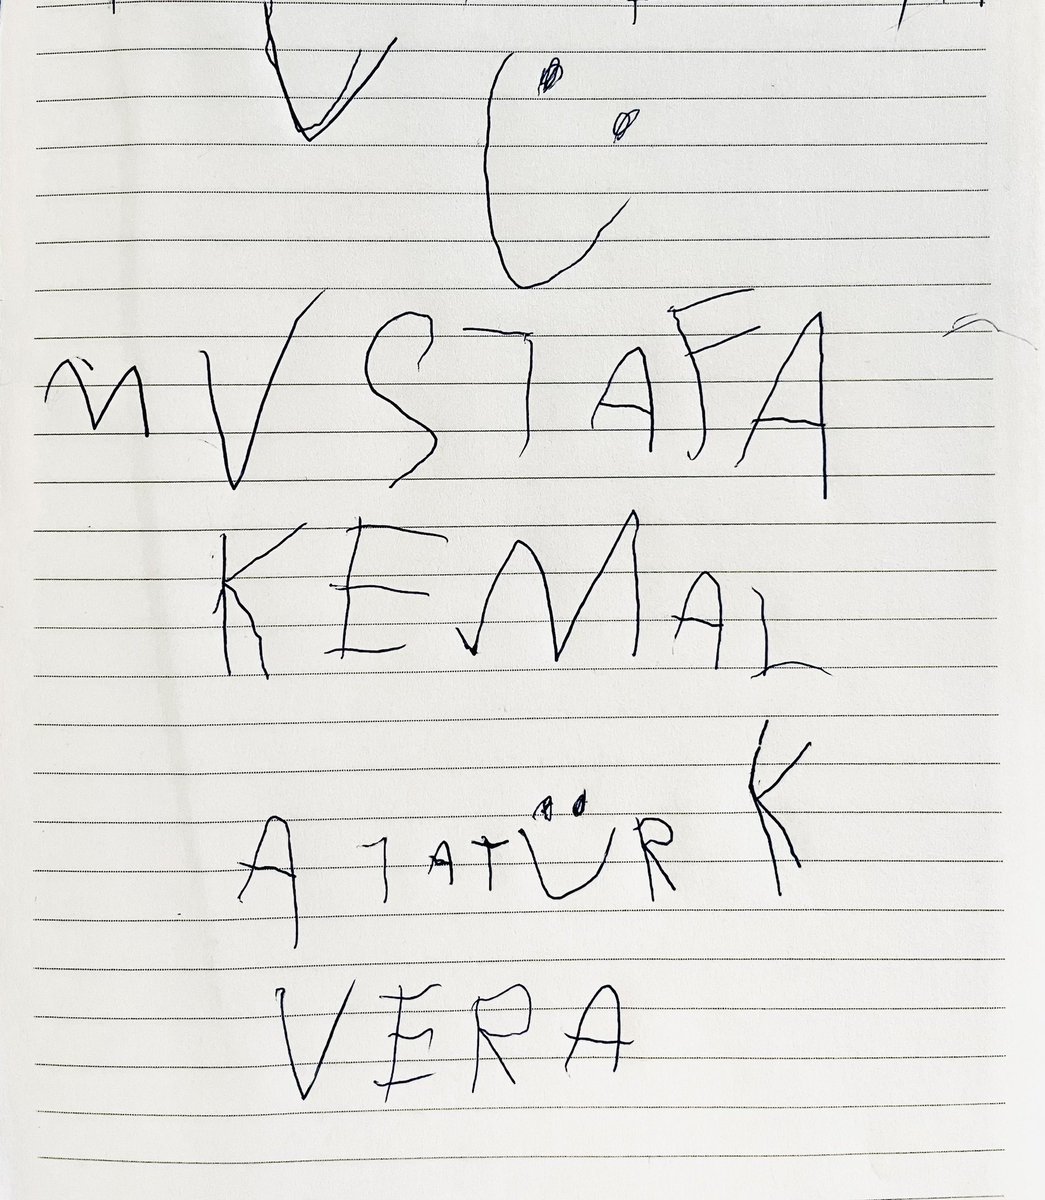 V
Ü
MUSTAFA
KEMAL
ATATÜRK
VERA